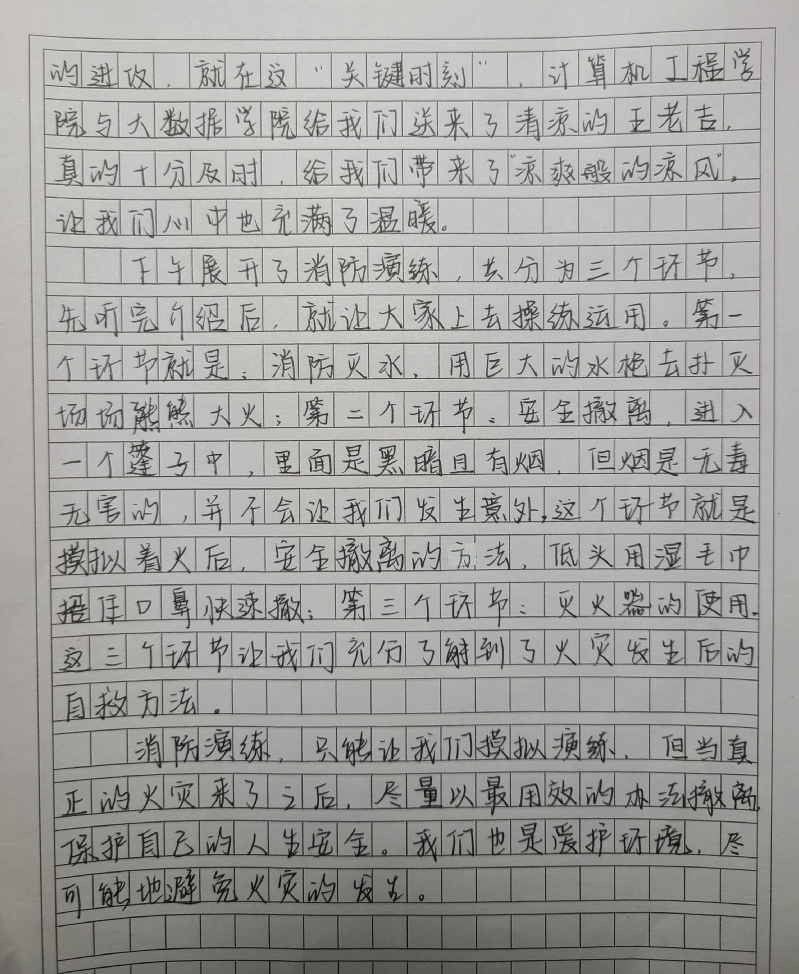 的进攻，就在这“关键时刻”，计算机工程学
院与大数据学院给我们送来了清凉的王老吉，
真的十分及时，给我们带来了“凉爽般的凉风”，
让我们心中也充满了温暖。
下午展开了消防演练，共分为三个环节，
先听完介绍后，就让大家上去操练运用。第一
个环节就是：消防灭水，用巨大的水枪去扑灭
场场熊熊大火；第二个环节：安全撤离，进入
一个篷子中，里面是黑暗且有烟，但烟是无毒
无害的，并不会让我们发生意外，这个环节就是
摸拟着火后，安全撤离的方法，低头用湿毛巾
捂住口鼻快速撤；第三个环节：灭火器的使用。
这三个环节让我们充分了解到了火灾发生后的
自救方法。
消防演练，只能让我们摸拟演练，但当真
正的火灾来了之后，尽量以最用效的办法撤离，
保护自己的人生安全。我们也是爱护环境，尽
可能地避免火灾的发生。